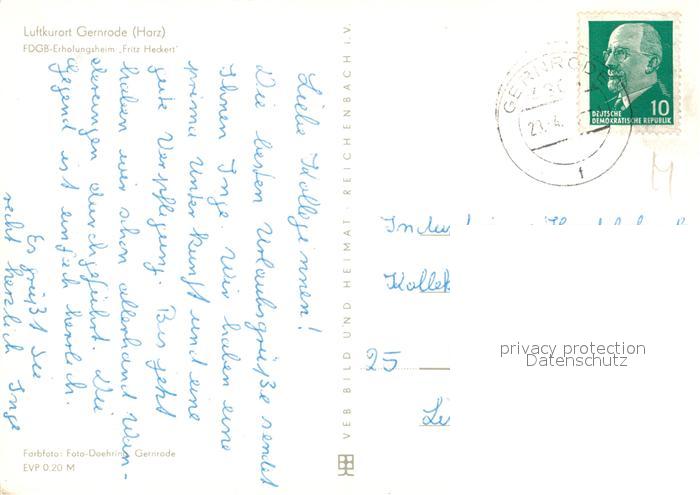 Luftkurort Gernrode (Harz)
FDGB-Erholungsheim „Fritz Heckert"
Liebe Kolleginnen!
Die besten Urlaubsgrüße sendet
Ihnen Inge. Wir haben eine
prima Unterkunft und eine
gute Verpflegung. Bis jetzt
haben wir schon allerhand Wan-
derungen durchgeführt. Die
Gegend ist einfach herrlich.
Es grüßt Sie
recht herzlich Inge
Farbfoto: Foto-Doehring, Gernrode
EVP 0.20 M
VEB BILD UND HEIMAT · REICHENBACH i.V.
GERNRODE
10
DEUTSCHE
DEMOKRATISCHE REPUBLIK
Kollek
25
privacy protection
Datenschutz